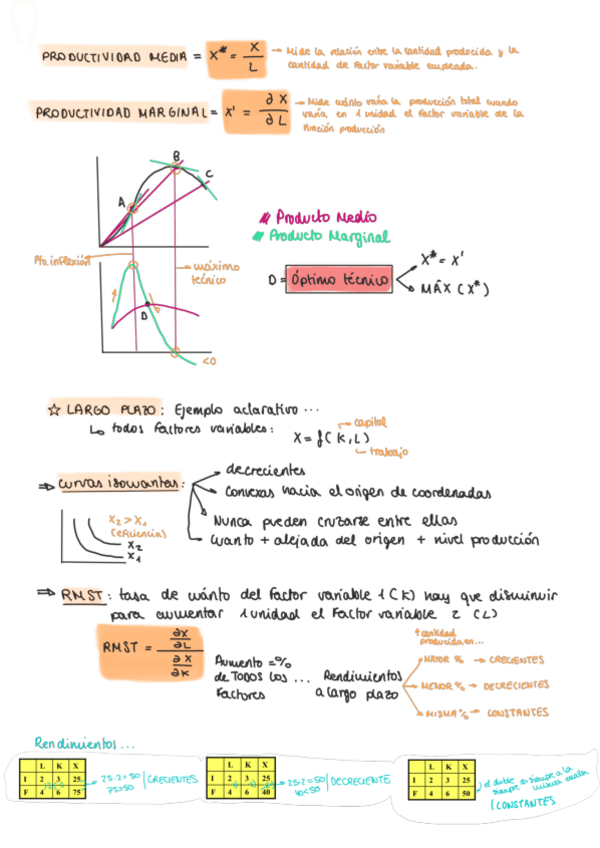 PRODUCTIVIDAD MEDIA = X* = X / L → Mide la relación entre la cantidad producida y la
cantidad de factor variable empleada.
PRODUCTIVIDAD MARGINAL = X' = ∂X / ∂L → Mide cuánto varía la producción total cuando
varía en 1 unidad el factor variable de la
función producción
B
A
C
Producto Medio
Producto Marginal
Pto. inflexión
máximo
técnico
D = Óptimo técnico
X* = X'
MÁX (X*)
D
<0
☆ LARGO PLAZO: Ejemplo aclarativo...
↳ todos factores variables:
X = f(K, L)
capital
trabajo
⇒ Curvas isocuantas:
decrecientes
Convexas hacia el origen de coordenadas
Nunca pueden cruzarse entre ellas
Cuanto + alejada del origen + nivel producción
X₂ > X₁
(eficiencia)
X₂
X₁
⇒ RMST: tasa de cuánto del factor variable 1 (K) hay que disminuir
para aumentar 1 unidad el factor variable 2 (L)
RMST = ∂X/∂L / ∂X/∂K
Aumento = %
de TODOS los ...
factores
Rendimientos
a largo plazo
↑ cantidad
producida en...
MAYOR % → CRECIENTES
MENOR % → DECRECIENTES
MISMA % → CONSTANTES
Rendimientos...
L K X
1 2 3 25
F 4 6 75
25·2=50
75>50
CRECIENTES
L K X
1 2 3 25
F 4 6 40
25·2=50
40<50
DECRECIENTE
L K X
1 2 3 25
F 4 6 50
el doble → siempre a la
siempre misma escala
CONSTANTES